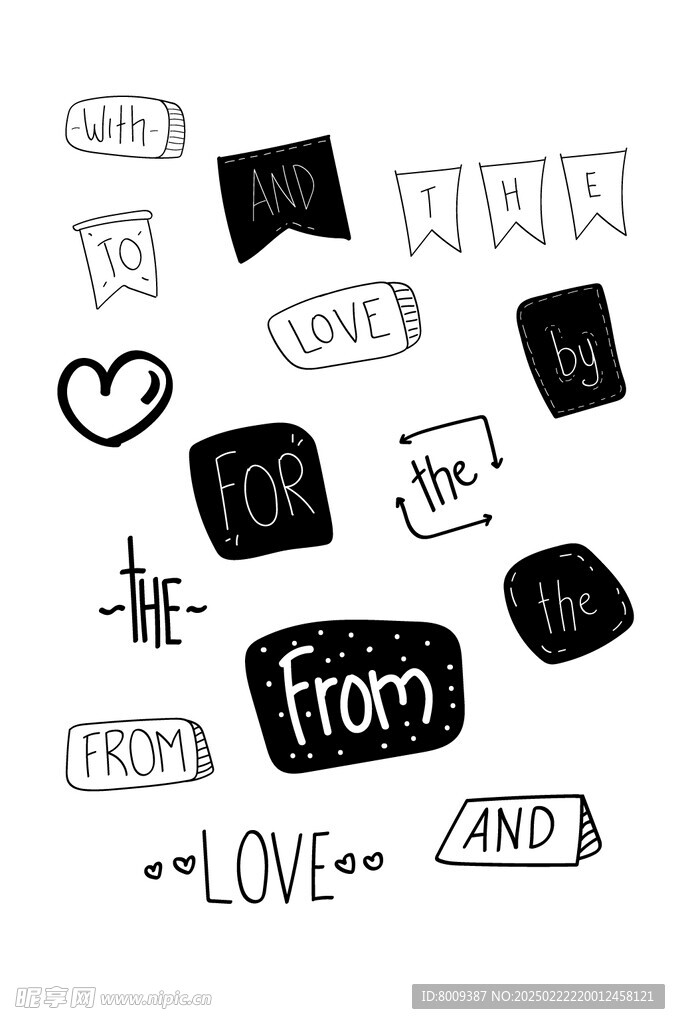 -With-
AND
THE
TO
LOVE
by
FOR
the
tHE
the
From
FROM
AND
LOVE
昵享网 www.nipic.cn
ID:8009387 NO:20250222220012458121